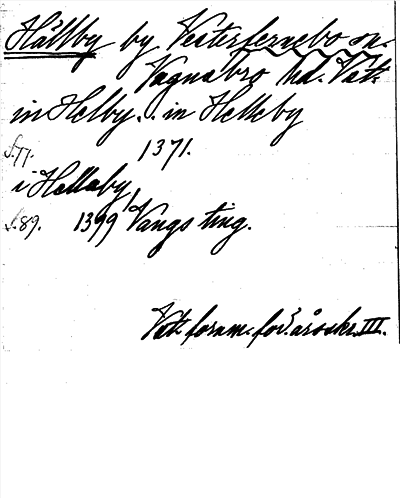 Hällby by Vesterfernebo sn.
Vagnsbro hd. Vstm.
in Helby. . in Helleby
s. 77. 1371.
i Hellaby,
s. 89. 1399 Vangs ting.
Vitt. fornm. för. årsskr. III.